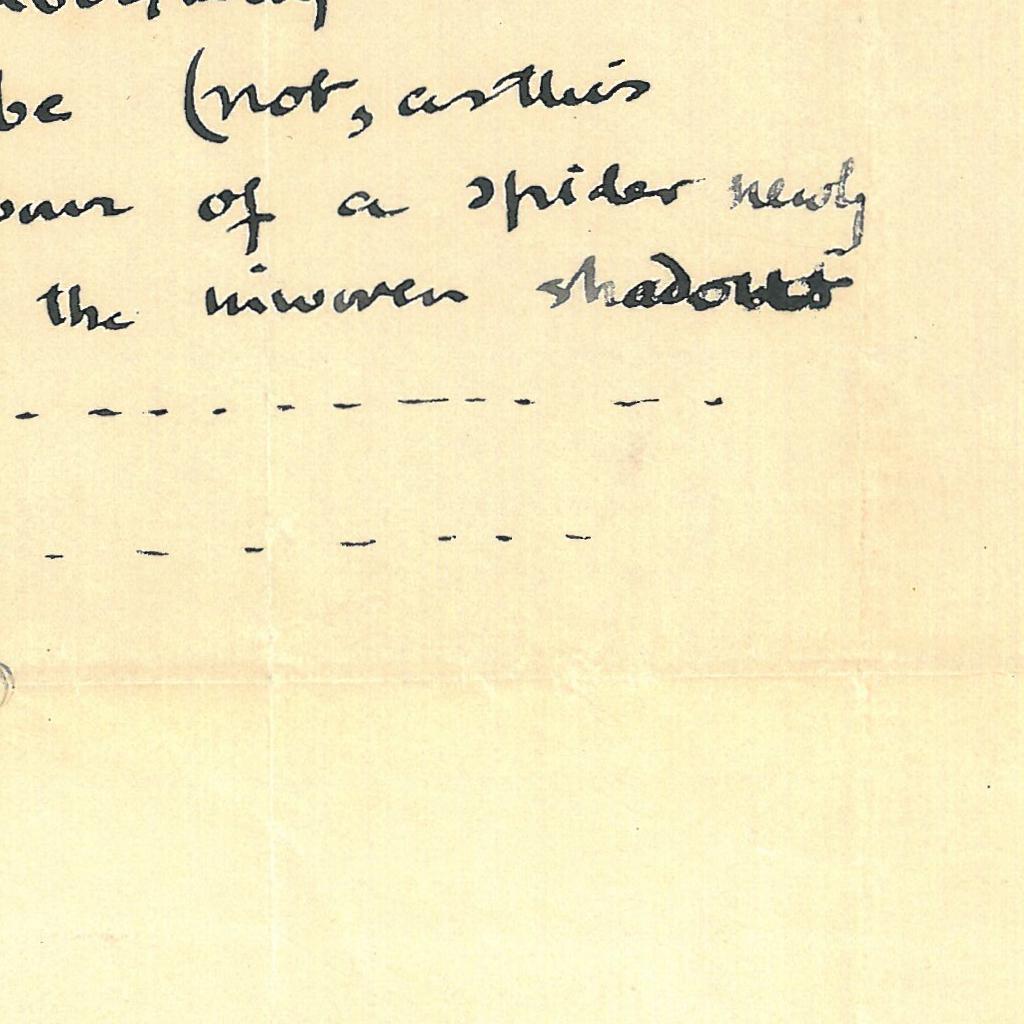 be (not, as this
of a spider newly
the inwoven shadows
- - - - - - - - - - -
- - - - - - -